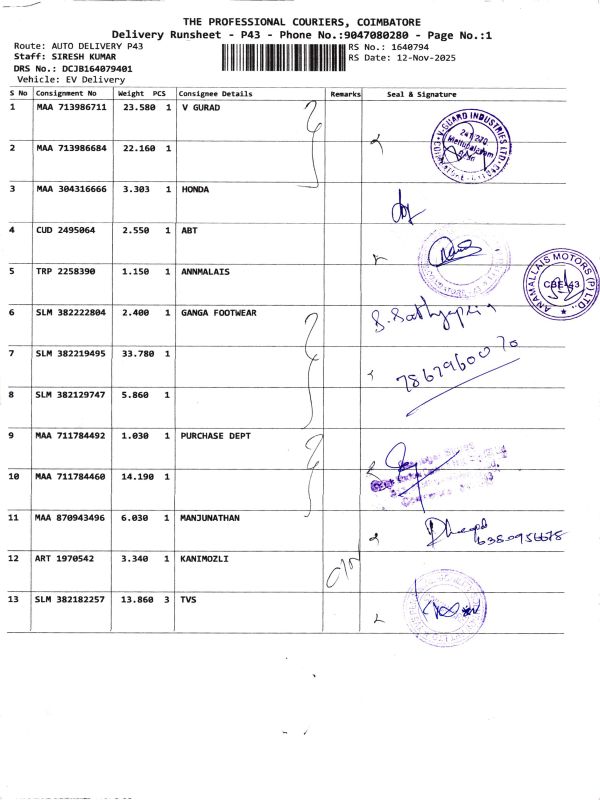 THE PROFESSIONAL COURIERS, COIMBATORE
Delivery Runsheet - P43 - Phone No.:9047080280 - Page No.:1
Route: AUTO DELIVERY P43
Staff: SIRESH KUMAR
DRS No.: DCJB164079401
Vehicle: EV Delivery
RS No.: 1640794
RS Date: 12-Nov-2025
S No Consignment No Weight PCS Consignee Details Remarks Seal & Signature
1 MAA 713986711 23.580 1 V GURAD
V-GUARD INDUSTRIES LTD
2 MAA 713986684 22.160 1
3 MAA 304316666 3.303 1 HONDA
4 CUD 2495064 2.550 1 ABT
5 TRP 2258390 1.150 1 ANNMALAIS
ANAMALLAIS MOTORS (P) LTD
CBE-43
6 SLM 382222804 2.400 1 GANGA FOOTWEAR
S. Sathyapria
7 SLM 382219495 33.780 1
7867960070
8 SLM 382129747 5.860 1
9 MAA 711784492 1.030 1 PURCHASE DEPT
10 MAA 711784460 14.190 1
11 MAA 870943496 6.030 1 MANJUNATHAN
6380956678
12 ART 1970542 3.340 1 KANIMOZLI
13 SLM 382182257 13.860 3 TVS